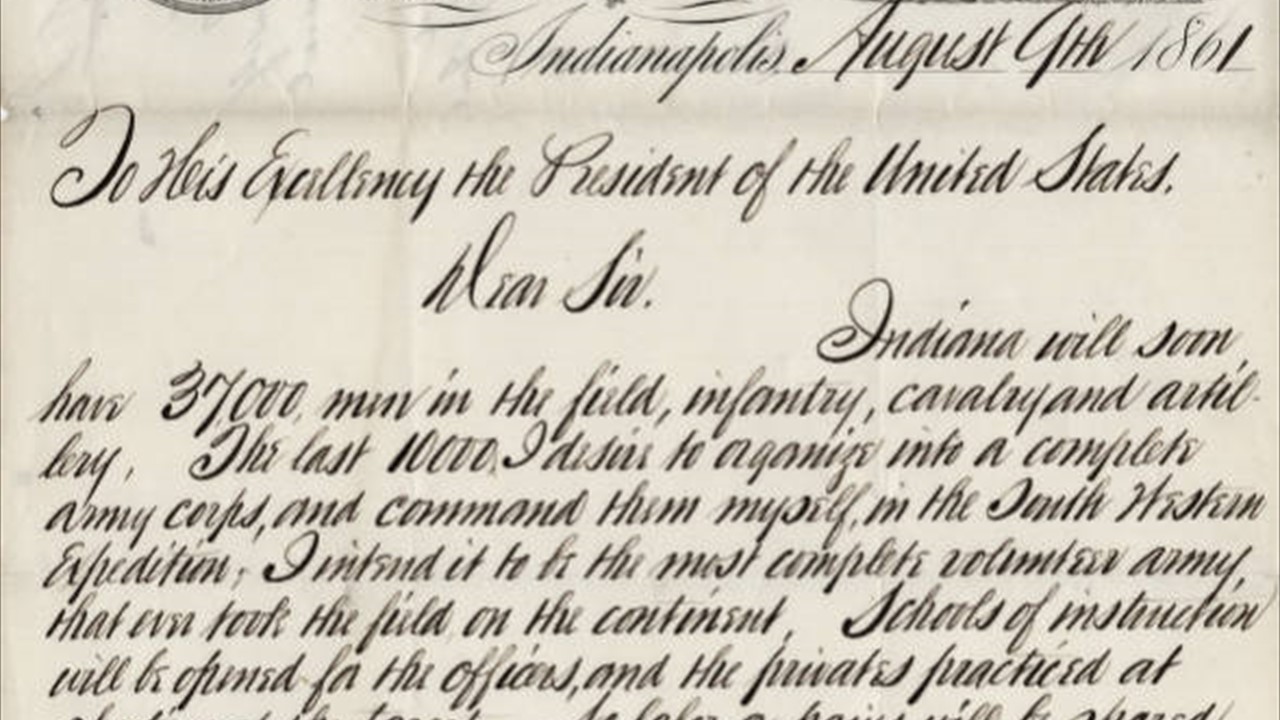 Indianapolis, August 9th 1861
To His Excellency the President of the United States.
Dear Sir.
Indiana will soon
have 37,000, men in the field, infantry, cavalry and artil-
lery. The last 10000, I desire to organize into a complete
army corps, and command them myself, in the South Western
Expedition; I intend it to be the most complete volunteer army,
that ever took the field on the continent, Schools of instruction
will be opened for the officers, and the privates practiced at
will be spared